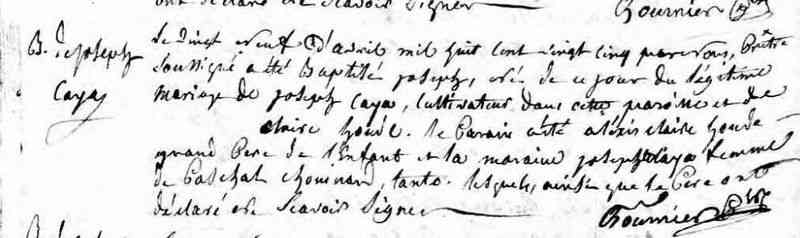 ont déclaré ne scavoir signer Fournier Ptre
B. de joseph
Caya
Le vingt neuf d'avril mil huit cent vingt cinq par nous, Prêtre
soussigné a été Baptisé joseph, né de ce jour du légitime
mariage de joseph Caya, Cultivateur dans cette paroisse et de
claire houde. le Parain a été alexis claire houde
grand Pere de l'Enfant et la maraine josephe Caya femme
de Paschal Chouinard, tante. lesquels, ainsi que le Pere ont
déclaré ne Scavoir Signer Fournier Ptre